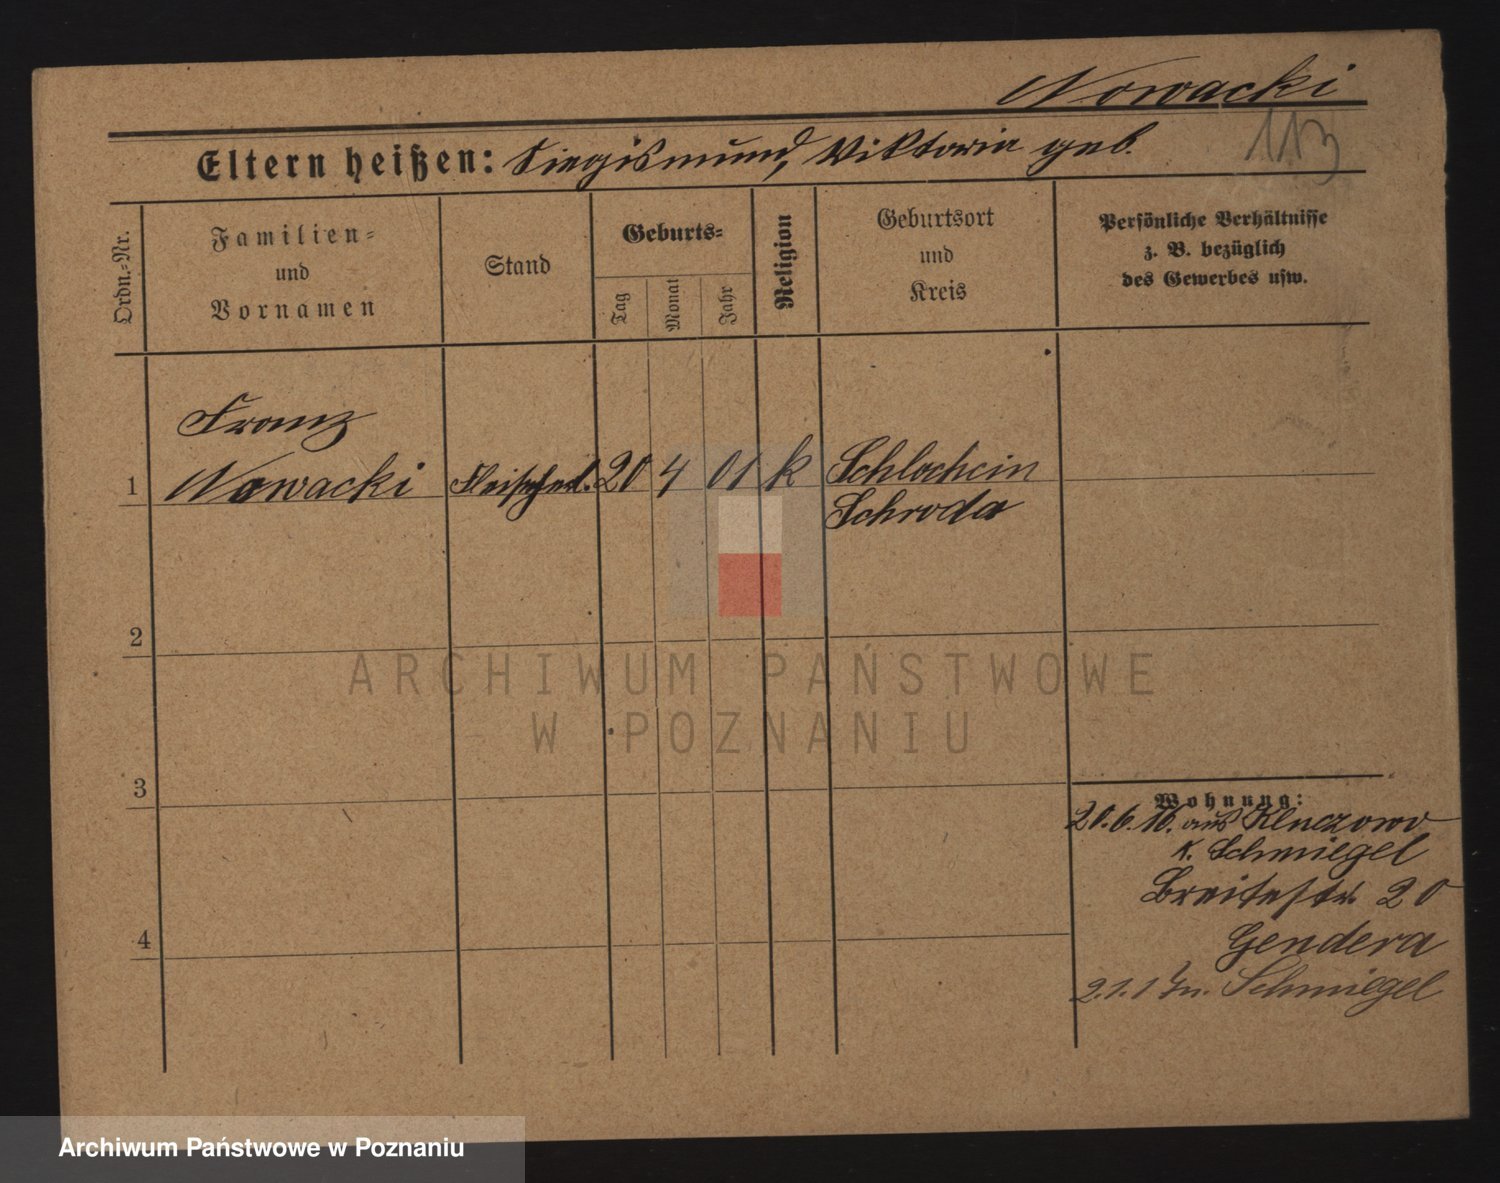 Nowacki
113
Eltern heißen: Siegismund, Viktoria geb.
Ordn.-Nr.
Familien-
und
Vornamen
Stand
Geburts-
Tag
Monat
Jahr
Religion
Geburtsort
und
Kreis
Persönliche Verhältnisse
z. B. bezüglich
des Gewerbes usw.
Franz
1 Nowacki 20 4 01 k Schlochcin
Schroda
2
3
4
Wohnung:
20.6.16. aus Kluczowo
K. Schmiegel
Breitestr. 20
Gendera
Schmiegel
ARCHIWUM PAŃSTWOWE
W POZNANIU
Archiwum Państwowe w Poznaniu